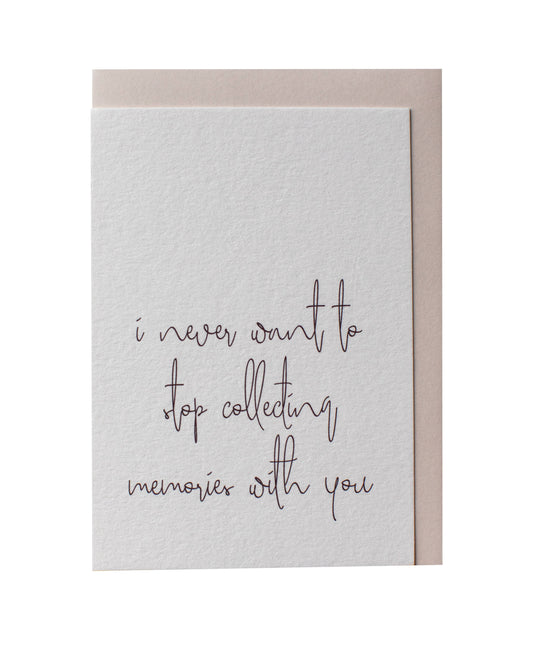 i never want to
stop collecting
memories with you